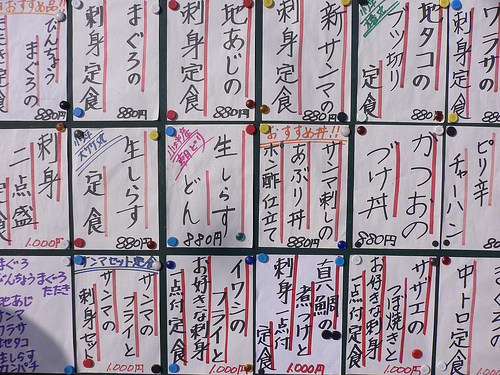 おすすめ品!!
びんちょう
まぐろの
まぐろの
刺身定食
880円
地あじの
刺身定食
880円
新サンマの
刺身定食
880円
地タコの
ブツ切り
定食
880
ワラサの
刺身定食
880円
刺身
二点盛
定食
1.000円
生しらす
定食
880円
生しらす
どん
880円
おすすめ丼!!
サンマ刺しの
あぶり丼
ホン酢仕立て
880円
かつおの
づけ丼
880円
ピリ辛
チャーハン
880円
まぐろ
びんちょうまぐろ
たたき
地あじ
サンマ
ワラサ
地タコ
生しらす
カンパチ
サンマセット定食
サンマの
フライと
サンマの
刺身セット
1.000円
イワシの
フライと
お好きな刺身
一点付定食
1.000円
真鯛の
煮つけと
刺身一点付
定食
1.000円
サザエの
つぼ焼きと
お好きな刺身
一点付定食
1.000円
まぐろの
中トロ定食
1.000円